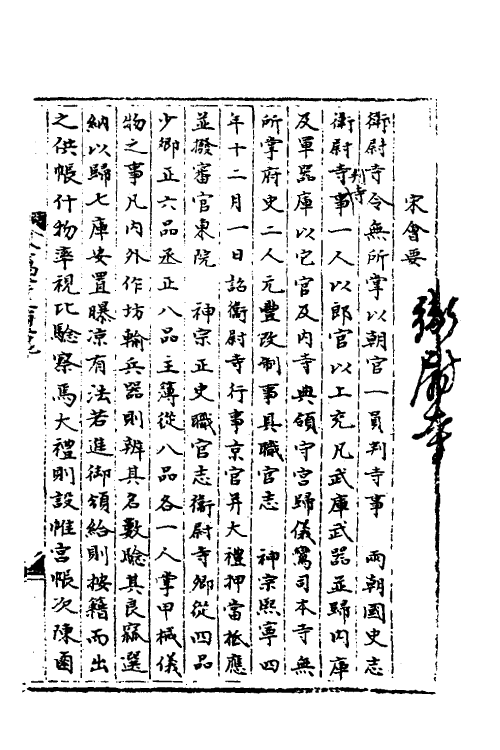 宋會要
衛尉寺
衛尉寺令無所掌以朝官一員判寺事 兩朝國史志
衛尉寺判寺事一人以郎官以上充凡武庫武器並歸內庫
及軍器庫以它官及內寺典領守宮歸儀鸞司本寺無
所掌府史二人元豐改制事具職官志 神宗熙寧四
年十二月一日詔衛尉寺行事京官并大禮押當祗應
並撥審官東院 神宗正史職官志衛尉寺卿從四品
少卿正六品丞正八品主簿從八品各一人掌甲械儀
物之事凡內外作坊輸兵器則辨其名數驗其良窳選
納以歸七庫安置曝凉有法若進御頒給則按籍而出
之供帳什物率視比驗察焉大禮則設帷宮帳次陳鹵